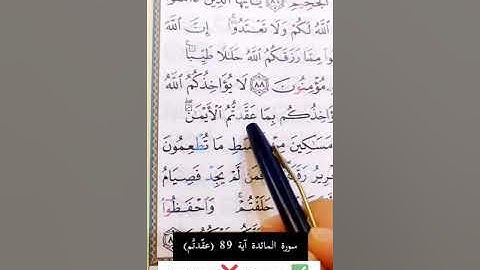 الجحيم ۝٨٦ يَٰٓأَيُّهَا ٱلَّذِينَ
ٱللَّهُ لَكُمْ وَلَا تَعْتَدُوٓا۟ إِنَّ ٱللَّهَ
مِمَّا رَزَقَكُمُ ٱللَّهُ حَلَٰلًا طَيِّبًا
مُؤْمِنُونَ ۝٨٨ لَا يُؤَاخِذُكُمُ ٱللَّهُ
يُؤَاخِذُكُم بِمَا عَقَّدتُّمُ ٱلْأَيْمَٰنَ
مَسَٰكِينَ مِنْ أَوْسَطِ مَا تُطْعِمُونَ
تَحْرِيرُ رَقَبَةٍ فَمَن لَّمْ يَجِدْ فَصِيَامُ
حَلَفْتُمْ وَٱحْفَظُوٓا۟
سورة المائدة آية 89 (عقّدتُم)